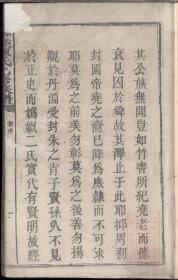 其公族無聞豈如竹書所紀堯老而德
衰見囚於舜故其澤止于此耶抑周初
封國帝堯之裔已降爲庶隷而不可求
耶堯爲之前美勿彰莫爲之後善勿揚
觀於丹淵受封朱之肖子賢孫乆不見
於正史而嬀虞二氏實代有賢明故經